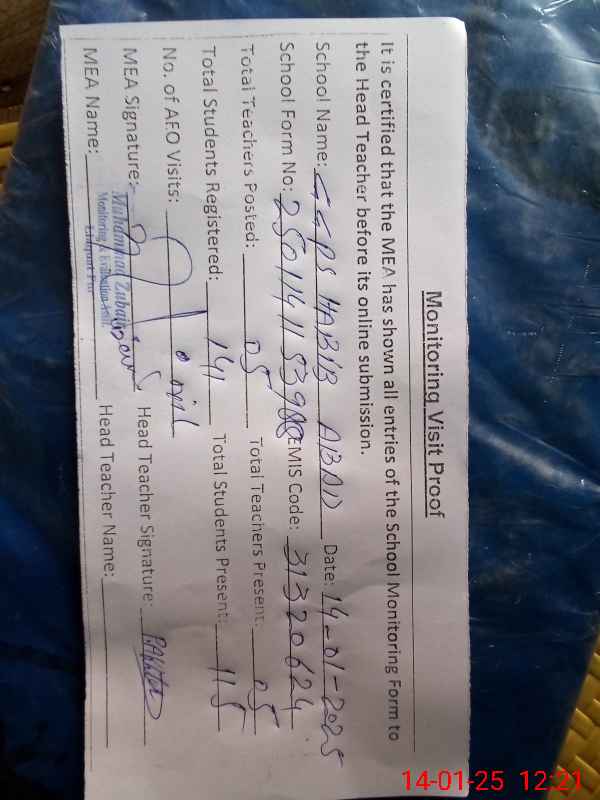 Monitoring Visit Proof
It is certified that the MEA has shown all entries of the School Monitoring Form to
the Head Teacher before its online submission.
School Name: GGPS HABIB ABAD Date: 14-01-2025
School Form No: EMIS Code: 31320624
Total Teachers Posted: 05 Total Teachers Present: 05
Total Students Registered: 141 Total Students Present: 115
No. of AEO Visits:
MEA Signature:- Head Teacher Signature:
MEA Name: Head Teacher Name:
Muhammad
Monitoring & Evaluation
14-01-25 12:21